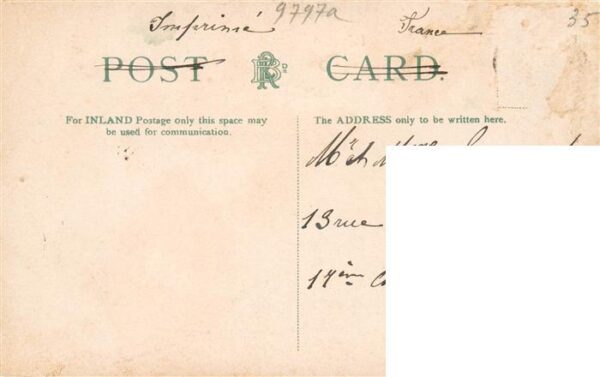 Imprimé 9797a France 35
POST CARD.
For INLAND Postage only this space may
be used for communication.
The ADDRESS only to be written here.
13 rue
17ème